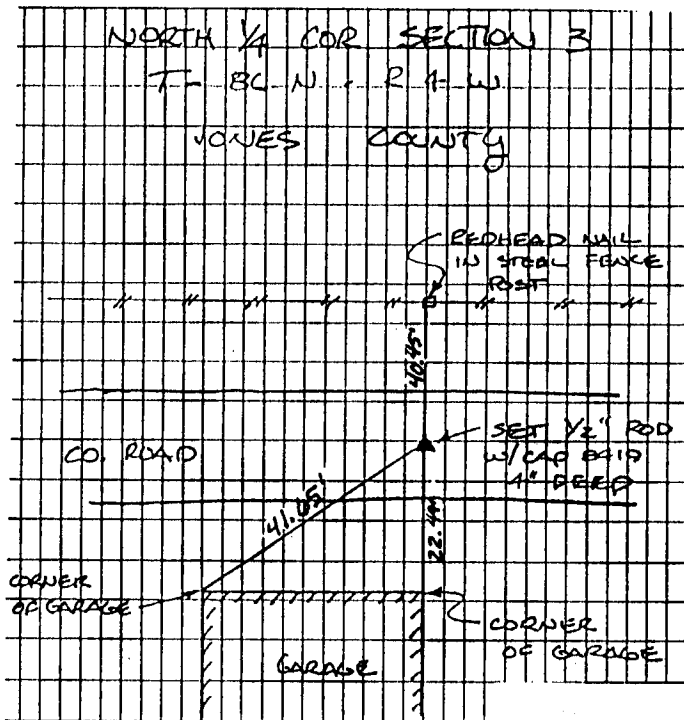 NORTH 1/4 COR SECTION 3
T- 86 N - R 4 W
JONES COUNTY
REDHEAD NAIL
IN STEEL FENCE
POST
40.45'
SET 1/2" ROD
W/CAP 8419
4" DEEP
CO. ROAD
41.05'
22.44'
CORNER
OF GARAGE
CORNER
OF GARAGE
GARAGE